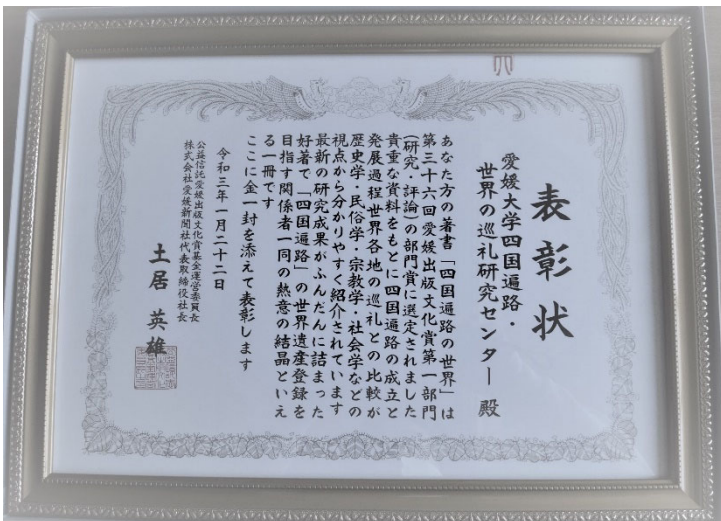 表彰状
愛媛大学四国遍路・
世界の巡礼研究センター 殿
あなた方の著書「四国遍路の世界」は
第三十六回愛媛出版文化賞第一部門
(研究・評論)の部門賞に選定されました
貴重な資料をもとに四国遍路の成立と
発展過程世界各地の巡礼との比較が
歴史学・民俗学・宗教学・社会学などの
視点から分かりやすく紹介されています
最新の研究成果がふんだんに詰まった
好著で「四国遍路」の世界遺産登録を
目指す関係者一同の熱意の結晶といえ
る一冊です
ここに金一封を添えて表彰します
令和三年一月二十二日
公益信託愛媛出版文化賞基金運営委員長
株式会社愛媛新聞社代表取締役社長
土居 英雄